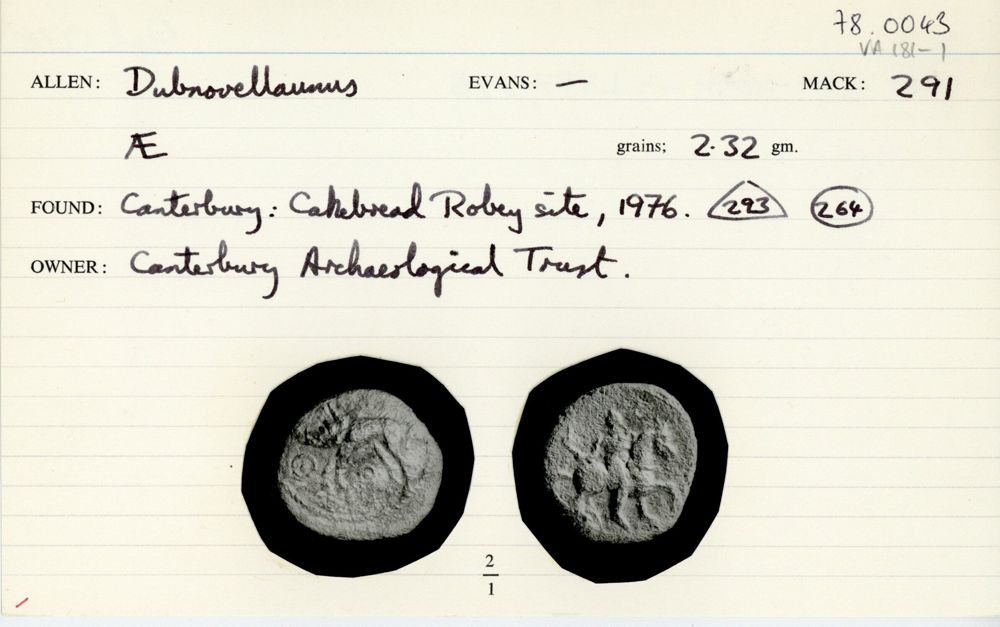 78.0043
VA 181-1
ALLEN: Dubnovellaunus EVANS: — MACK: 291
Æ grains; 2.32 gm.
FOUND: Canterbury: Cakebread Robey site, 1976. 293 264
OWNER: Canterbury Archaeological Trust.
2
1